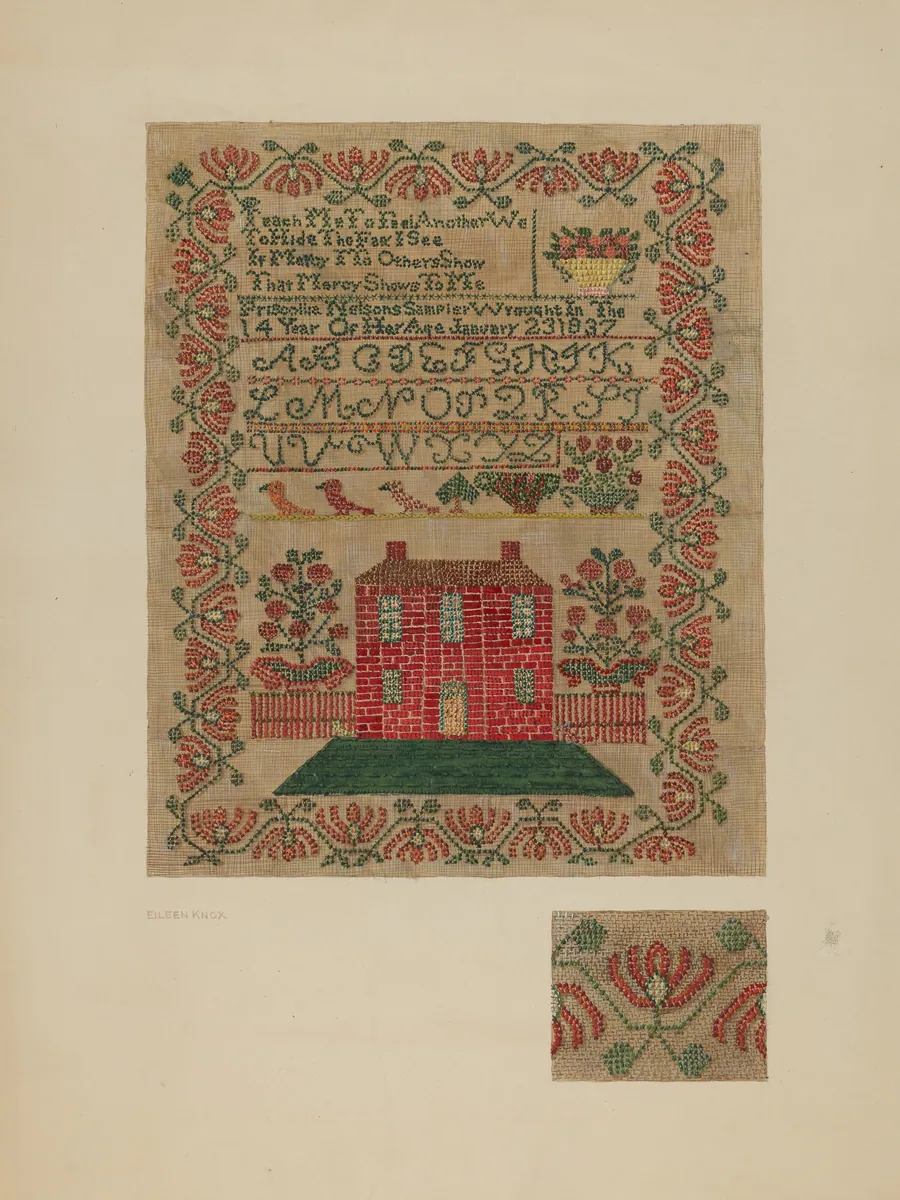 Teach Me To Feel Another We
To Hide The Faw I See
If Mercy Me Others Show
That Mercy Shows To Me
Priscilla Nelsons Sampler Wrought In The
14 Year Of Her Age January 23 1837
A B C D E F G H I K
L M N O P Q R S T
U V W X Y Z
EILEEN KNOX